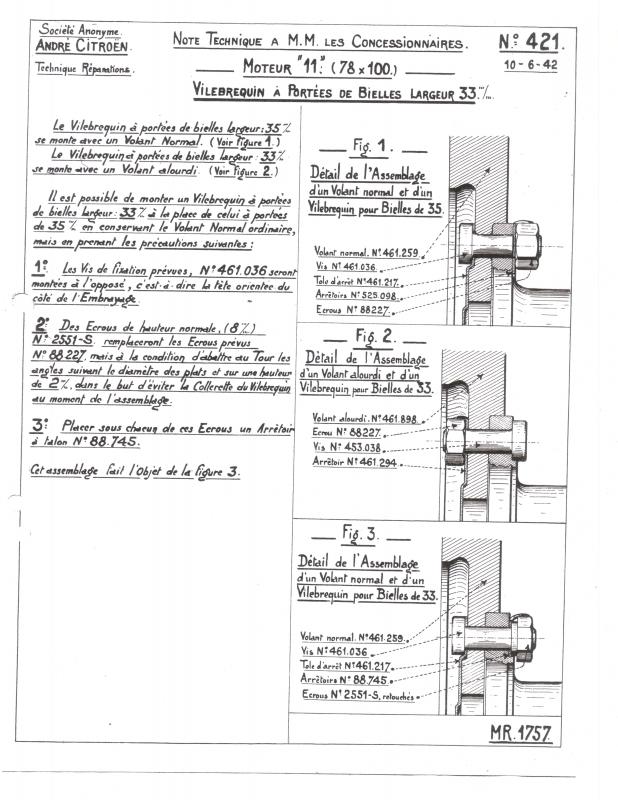 Société Anonyme.
ANDRÉ CITROËN.
Technique Réparations.
NOTE TECHNIQUE A M.M. LES CONCESSIONNAIRES.
MOTEUR "11". (78 x 100.)
VILEBREQUIN À PORTÉES DE BIELLES LARGEUR 33 m/m.
N° 421.
10-6-42
Le Vilebrequin à portées de bielles largeur: 35 m/m
se monte avec un Volant Normal. (Voir figure 1.)
Le Vilebrequin à portées de bielles largeur: 33 m/m
se monte avec un Volant alourdi. (Voir figure 2.)
Il est possible de monter un Vilebrequin à portées
de bielles largeur: 33 m/m à la place de celui à portées
de 35 m/m en conservant le Volant Normal ordinaire,
mais en prenant les précautions suivantes:
1° Les Vis de fixation prévues, N° 461.036 seront
montées à l'opposé, c'est-à-dire la tête orientée du
côté de l'Embrayage.
2° Des Ecrous de hauteur normale, (8 m/m)
N° 2551-S. remplaceront les Ecrous prévus
N° 88227, mais à la condition d'abattre au Tour les
angles suivant le diamètre des plats et sur une hauteur
de 2 m/m, dans le but d'éviter la Collerette du Vilebrequin
au moment de l'assemblage.
3° Placer sous chacun de ces Ecrous un Arrêtoir
à talon N° 88.745.
Cet assemblage fait l'Objet de la figure 3.
Fig. 1.
Détail de l'Assemblage
d'un Volant normal et d'un
Vilebrequin pour Bielles de 35.
Volant normal. N° 461.259.
Vis N° 461.036.
Tole d'arrêt N° 461.217.
Arrêtoirs N° 525.098.
Ecrous N° 88227.
Fig. 2.
Détail de l'Assemblage
d'un Volant alourdi et d'un
Vilebrequin pour Bielles de 33.
Volant alourdi. N° 461.898.
Ecrou N° 88227.
Vis N° 453.038.
Arrêtoir N° 461.294.
Fig. 3.
Détail de l'Assemblage
d'un Volant normal et d'un
Vilebrequin pour Bielles de 33.
Volant normal. N° 461.259.
Vis N° 461.036
Tole d'arrêt N° 461.217.
Arrêtoirs N° 88.745.
Ecrous N° 2551-S, retouchés.
MR. 1757.